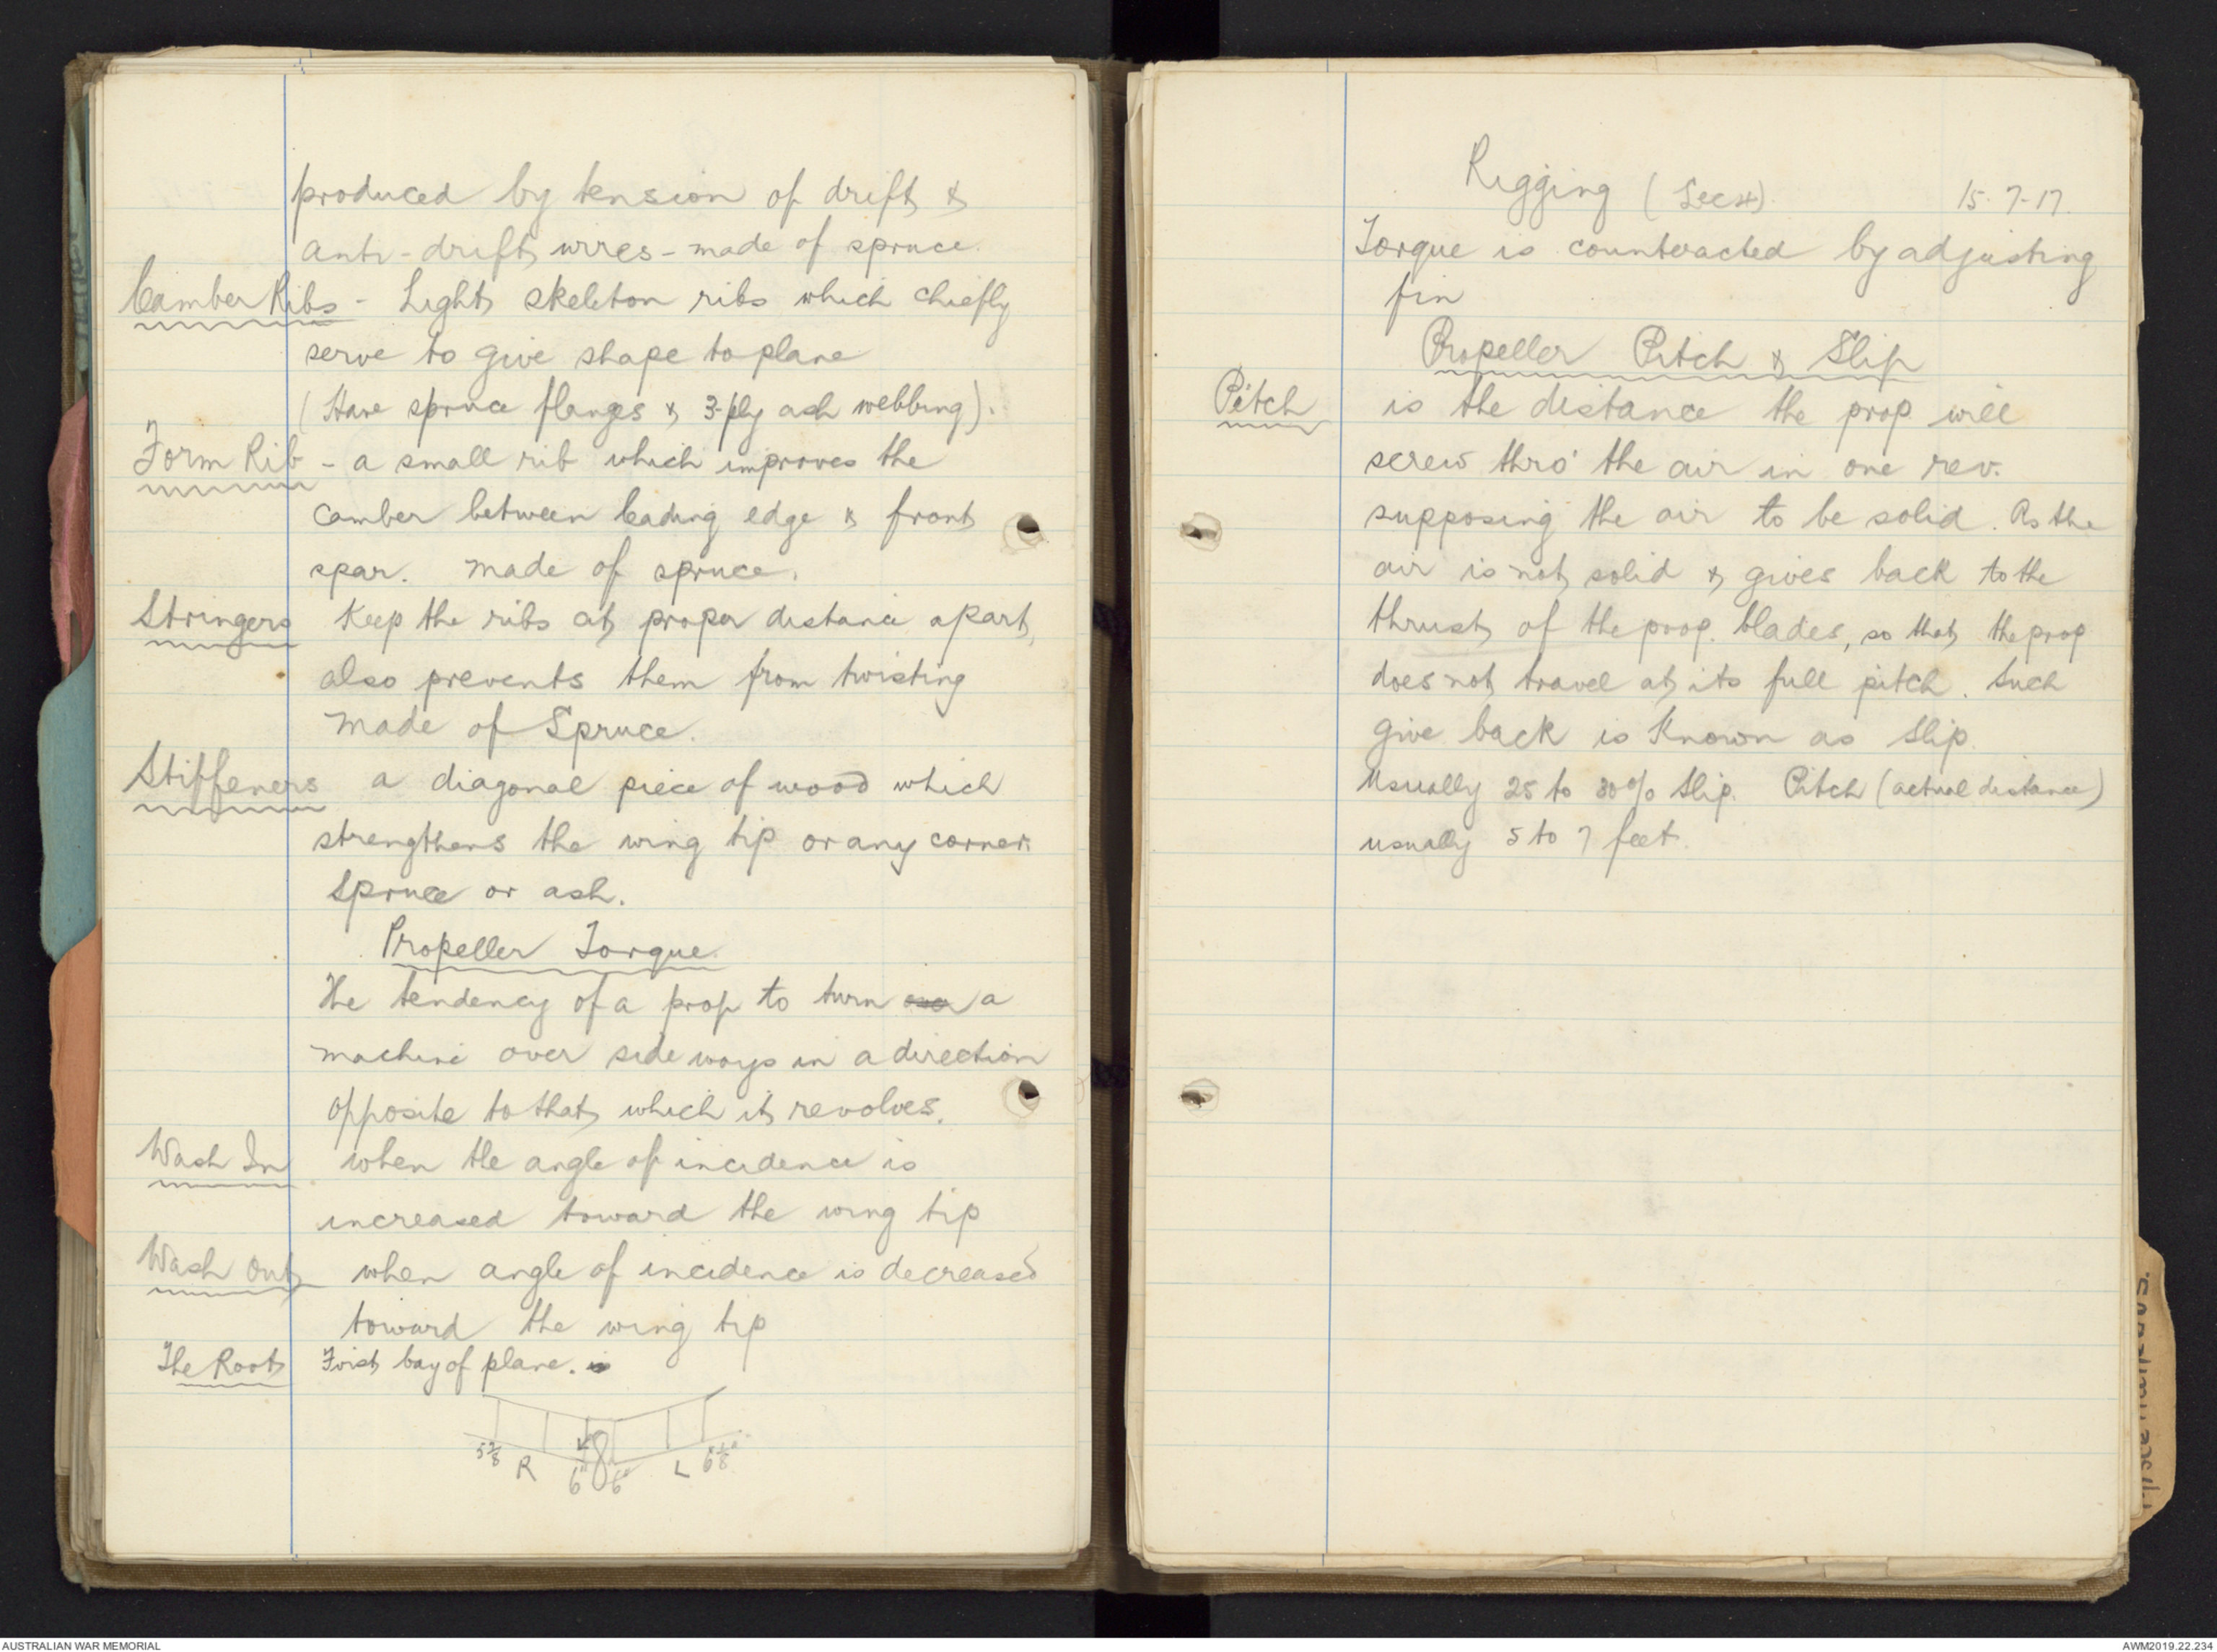 produced by tension of drift &
anti-drift wires - made of spruce.
Camber Ribs - Light skeleton ribs which chiefly
serve to give shape to plane
(Have spruce flanges & 3-ply ash webbing).
Form Rib - a small rib which improves the
camber between leading edge & front
spar. made of spruce.
Stringers Keep the ribs at proper distance apart,
also prevents them from twisting
made of Spruce.
Stiffeners a diagonal piece of wood which
strengthens the wing tip or any corner.
Spruce or ash.
Propeller Torque.
The tendency of a prop to turn a
machine over side ways in a direction
opposite to that which it revolves.
Wash In when the angle of incidence is
increased toward the wing tip
Wash Out when angle of incidence is decreased
toward the wing tip
The Root First bay of plane.
R 6" 6" L
Rigging 15-7-17.
Torque is counteracted by adjusting
fin
Propeller Pitch & Slip
Pitch is the distance the prop will
screw thro' the air in one rev.
supposing the air to be solid. As the
air is not solid & gives back to the
thrust of the prop. blades, so that the prop
does not travel at its full pitch. Such
give back is Known as Slip.
Usually 25 to 30% Slip. Pitch (actual distance)
usually 5 to 7 feet.
AUSTRALIAN WAR MEMORIAL
AWM2019.22.234